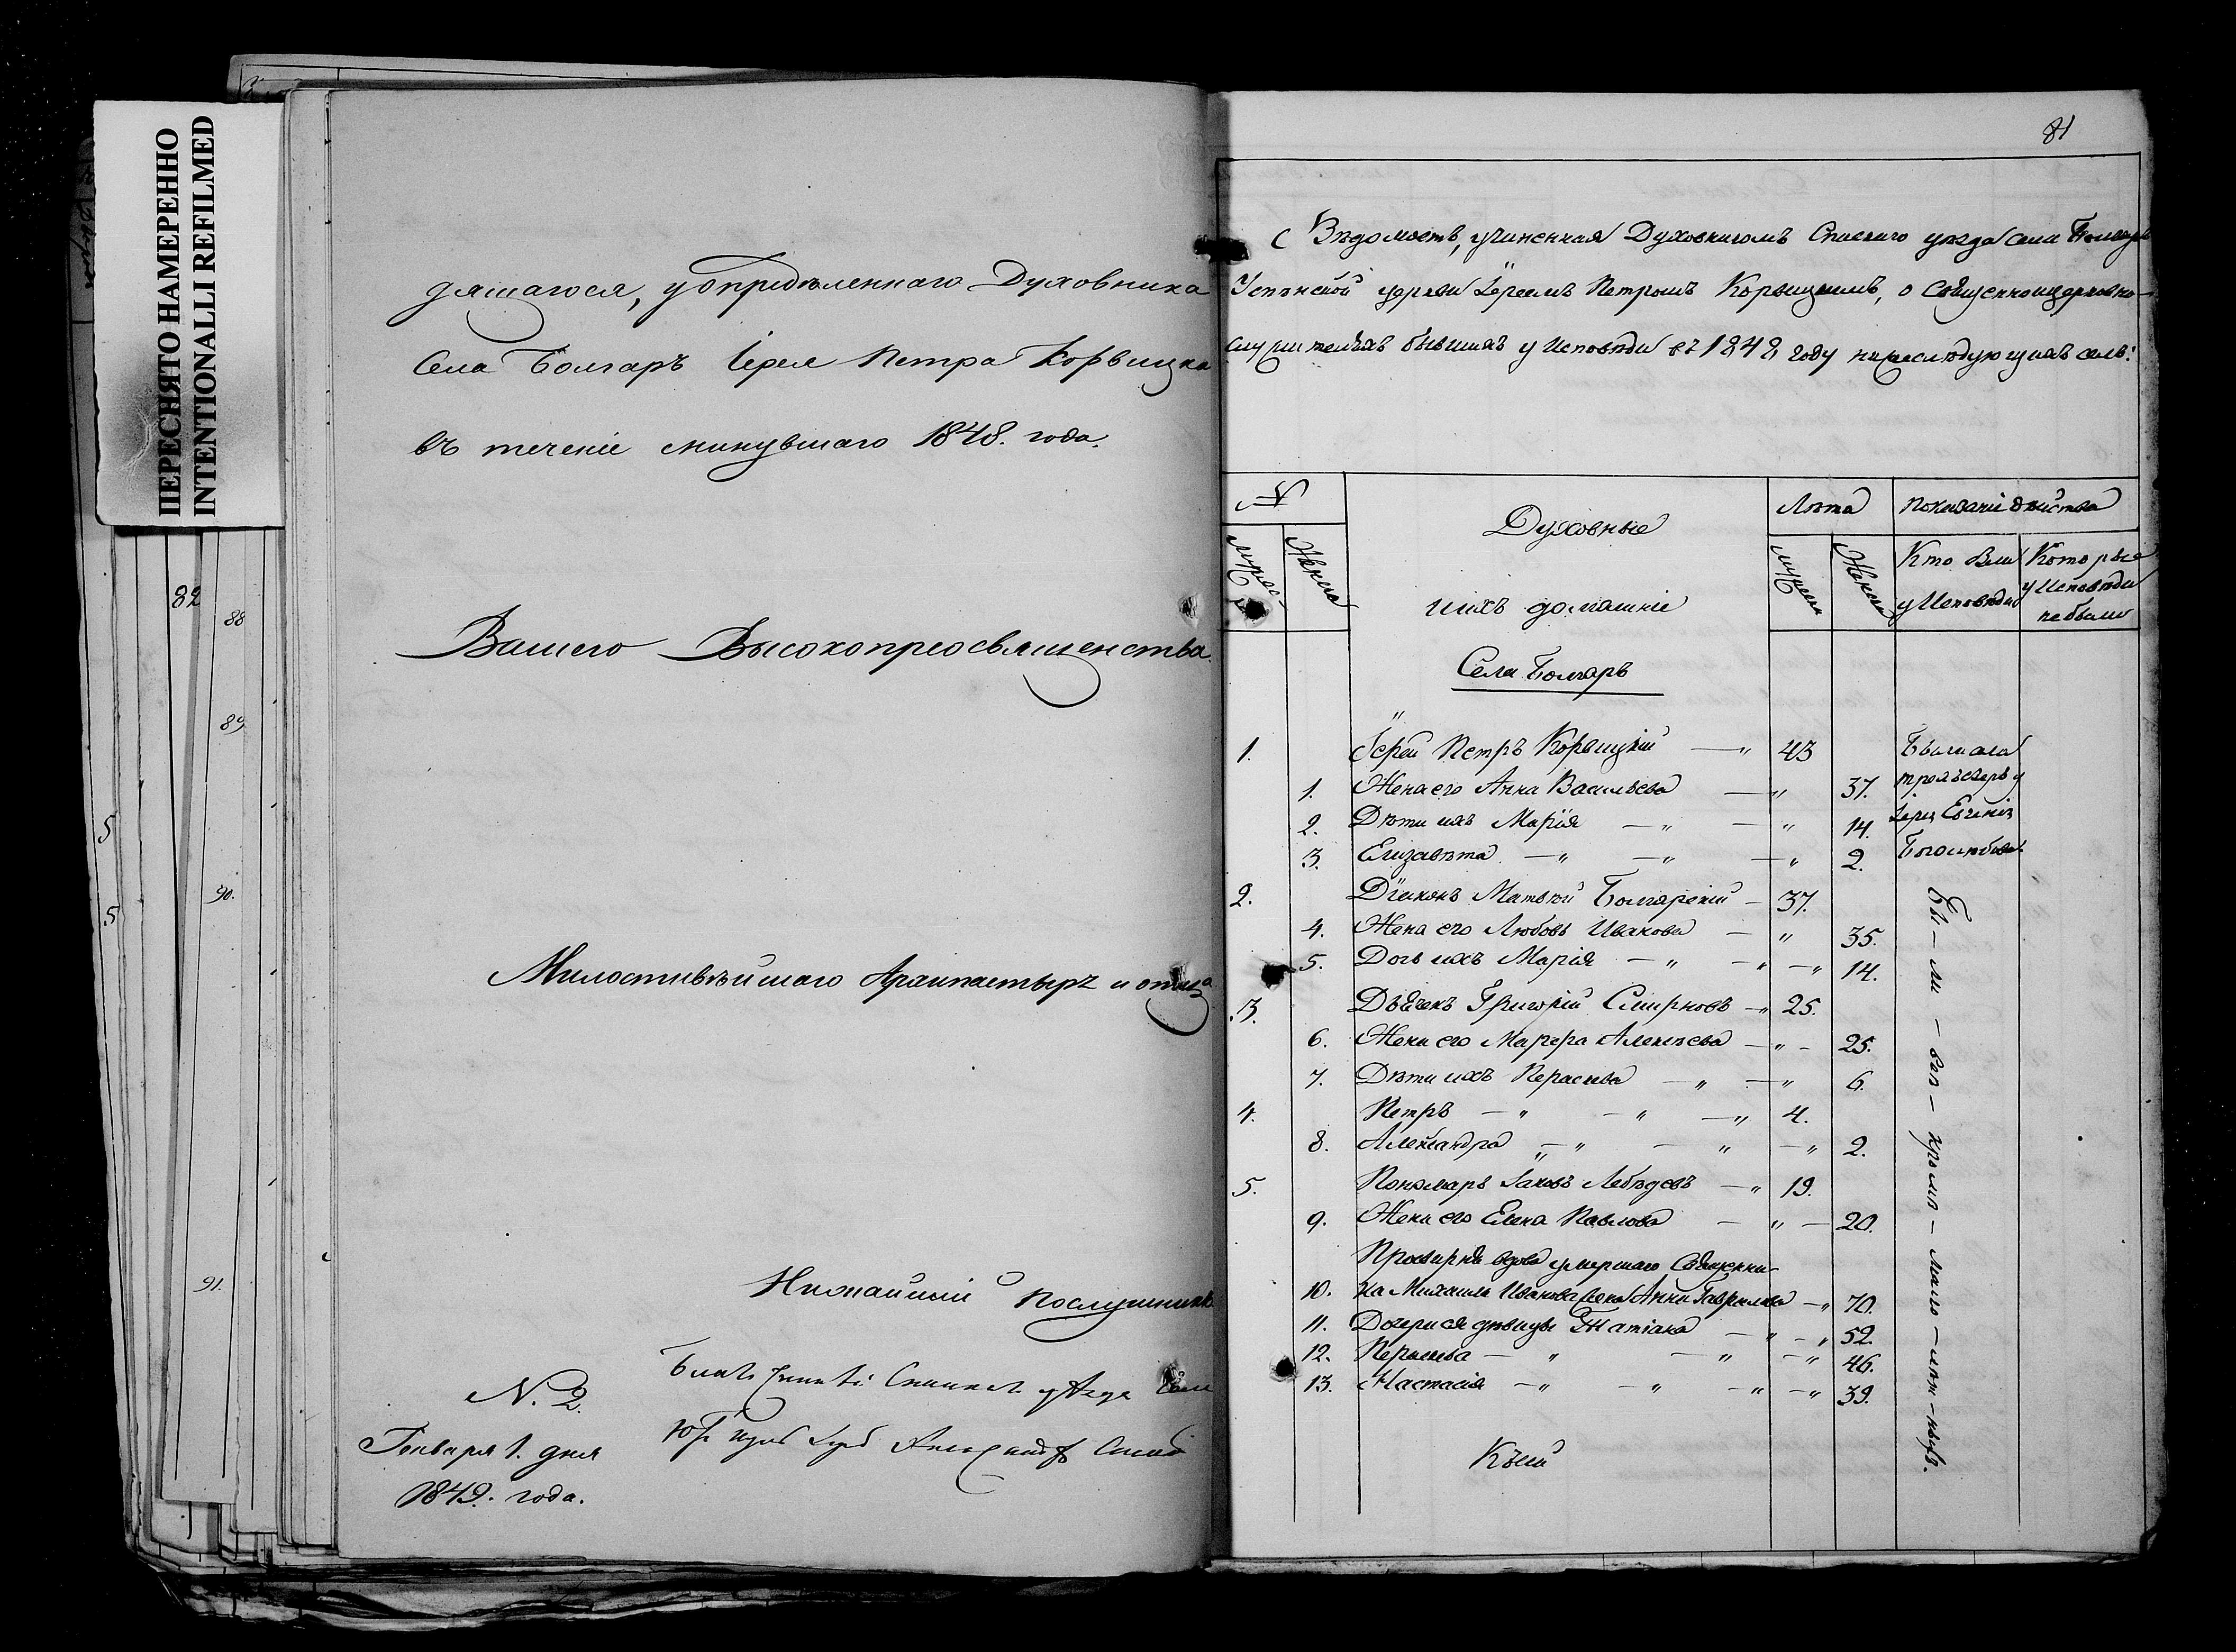 ПЕРЕСНЯТО НАМЕРЕННО
INTENTIONALLI REFILMED
82
88
89
5
90.
5
91.
дящагося, у опредѣленнаго Духовника
Села Болгаръ Іерея Петра Корвицка
въ теченіе минувшаго 1848. года.
Вашего Высокопреосвященства
Милостивѣйшаго Архипастыря и отца
Нижайшій Послушникъ
N. 2.
Генваря 1. дня
1849. года.
81
Вѣдомость, учиненная Духовникомъ Спаскаго уѣзда села Болгаръ
Успенской церкви Іереемъ Петромъ Корвицкимъ, о Священноцерковно-
служителяхъ бывшихъ у Исповѣди въ 1848 году нижеслѣдующихъ селъ:
N
Духовные
Лѣта
Показаніе дѣйства
мужеска
Женска
ихъ домашніе
мужеска
Женска
Кто были у Исповѣди
Которые у Исповѣди не были
Села Болгаръ
1. Іерей Петръ Корвицкій — " 43
1. Жена его Анна Васильева — " 37.
2. Дѣти ихъ Марія — " — " 14.
3. Елизавета — " — " — " 2.
2. Діаконъ Матвѣй Болгарскій — 37.
4. Жена его Любовь Иванова — " 35.
5. Дочь ихъ Марія — " — " — " 14.
3. Дьячекъ Григорій Смирновъ — " 25.
6. Жена его Марфа Алексѣева — " — 25.
7. Дѣти ихъ Параскева — " — " 6.
4. Петръ — " — " — " 4.
8. Александра — " — " — " 2.
5. Пономарь Іаковъ Лебедевъ — " 19.
9. Жена его Елена Павлова — " — 20.
Просвирня вдова умершаго Священни-
10. ка Михаила Иванова жена Анна Гаврилова — " 70.
11. Дочери ея дѣвицы Татіана — " — " 52.
12. Параскева — " — " — " 46.
13. Настасія — " — " — " — " 39.
Іерея Евгенія
Боголюбова
Бы — ли — всѣ — кромѣ — мало — лѣт — ныхъ.